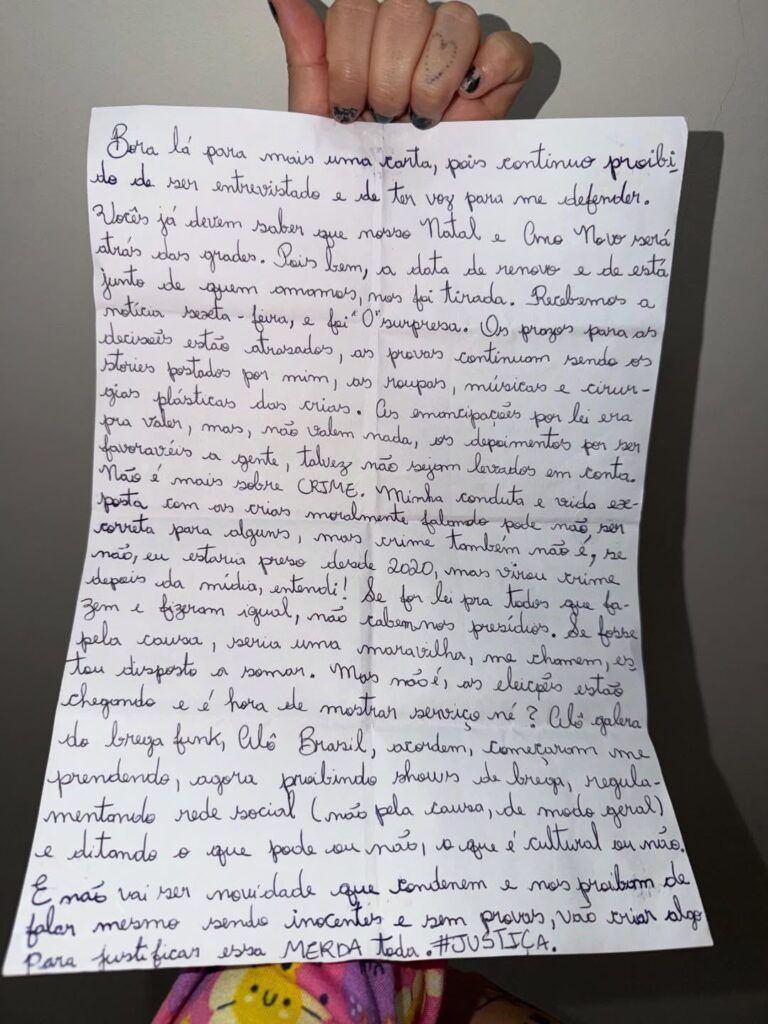 Bora lá para mais uma carta, pois continuo proibi-
do de ser entrevistado e de ter voz para me defender.
Vocês já devem saber que nosso Natal e Ano Novo será
atrás das grades. Pois bem, a data de renovo e de está
junto de quem amamos, nos foi tirada. Recebemos a
notícia sexta-feira, e foi "O" surpresa. Os prazos para as
deciseis estão atrasados, as provas continuam sendo os
stories postados por mim, as roupas, músicas e cirur-
gias plásticas das crias. As emancipações por lei era
pra valer, mas, não valem nada, os depoimentos por ser
favoravéis a gente, talvez não sejam levados em conta.
Não é mais sobre CRIME. Minha conduta e vida ex-
posta com as crias moralmente falando pode não ser
correta para alguns, mas crime também não é, se
não, eu estaria preso desde 2020, mas virou crime
depois da mídia, entendi! Se for lei pra todos que fa-
zem e fizeram igual, não cabem nos presídios. Se fosse
pela causa, seria uma maravilha, me chamem, es-
tou disposto a somar. Mas não é, as eleições estão
chegando e é hora de mostrar serviço né? Alô galera
do brega funk, Alô Brasil, acordem, começaram me
prendendo, agora proibindo shows de brega, regula-
mentando rede social (não pela causa, de modo geral)
e ditando o que pode ou não, o que é cultural ou não.
E não vai ser novidade que condenem e nos proibam de
falar mesmo sendo inocentes e sem provas, vão criar algo
para justificar essa MERDA toda. #JUSTIÇA.